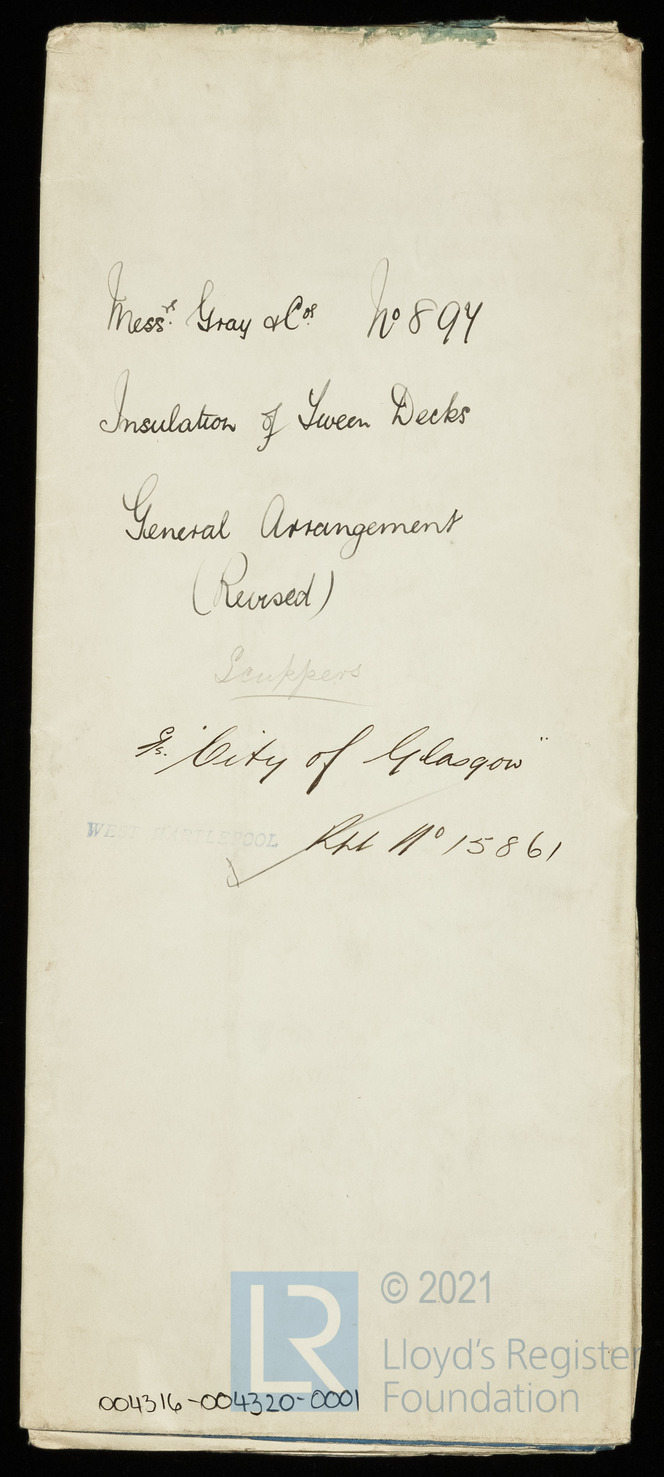 Messrs. Gray & Cos. No 894
Insulation of Tween Decks
General Arrangement
(Revised)
Scuppers
S/s. "City of Glasgow"
WEST HARTLEPOOL
Rpt No 15861
LR
© 2021
Lloyd's Register
Foundation
004316-004320-0001